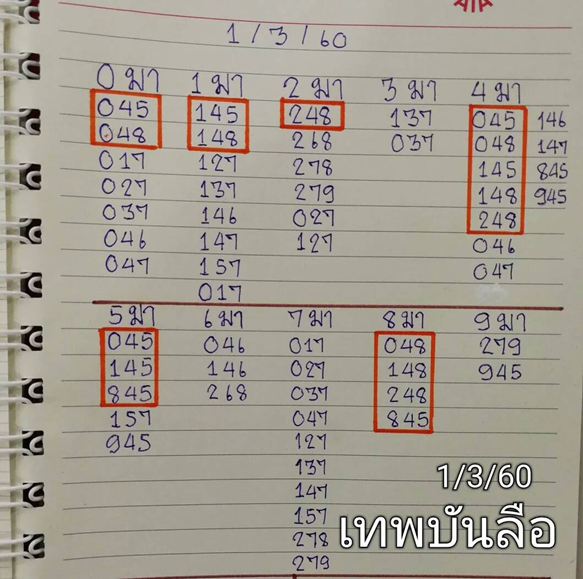 1/3/60
0 มา 1 มา 2 มา 3 มา 4 มา
045 145 248 137 045 146
048 148 268 037 048 147
017 127 278 145 845
027 137 279 148 945
037 146 027 248
046 147 127 046
047 157 047
017
5 มา 6 มา 7 มา 8 มา 9 มา
045 046 017 048 279
145 146 027 148 945
845 268 037 248
157 047 845
945 127
137
147
157
278
279
1/3/60
เทพบันลือ